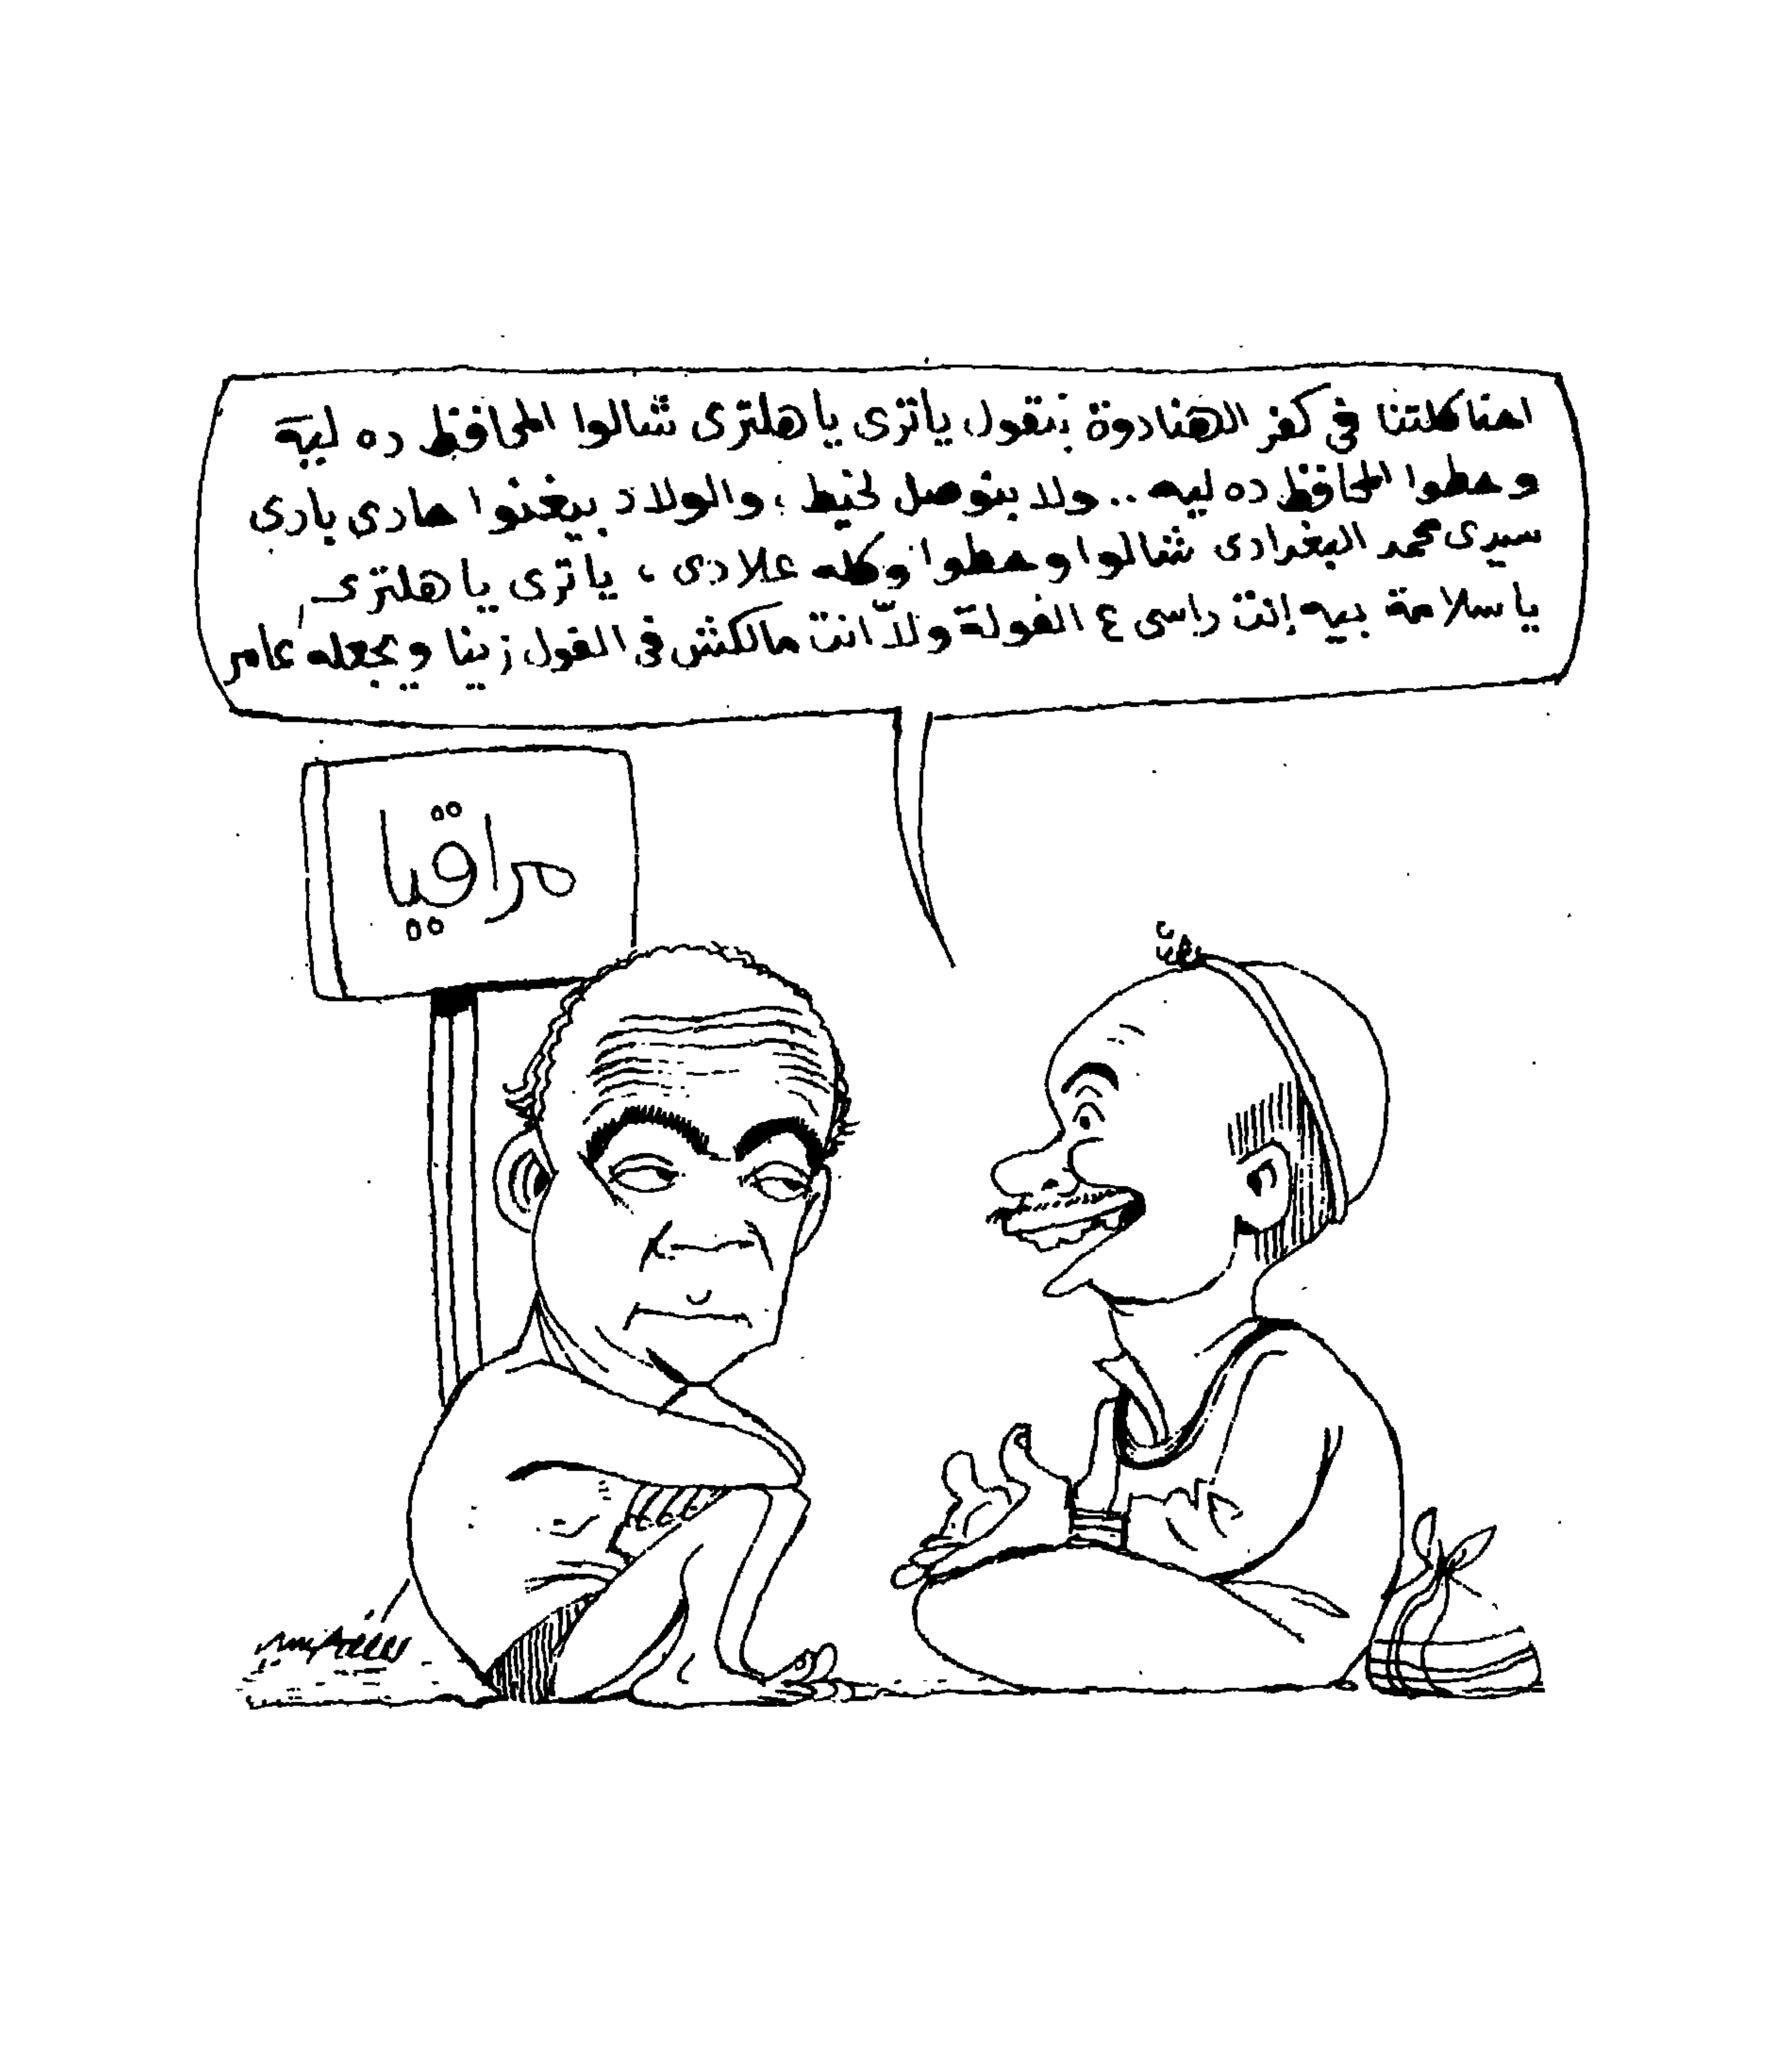 احنا كلتنا فى كفر الهنادوة بنقول ياترى ياهلترى شالوا المحافظ ده ليه
وحطوا المحافظ ده ليه .. ولا بنوصل لخيط ، والولاد بيغنوا حادى بادى
سيدى محمد البغدادى شالوا وحطوا وكله علادى ، ياترى ياهلترى
ياسلامة بيه إنت راسى ع الفولة ولاّ انت مالكش فى الفول زينا ويجعله عامر
مراقيا